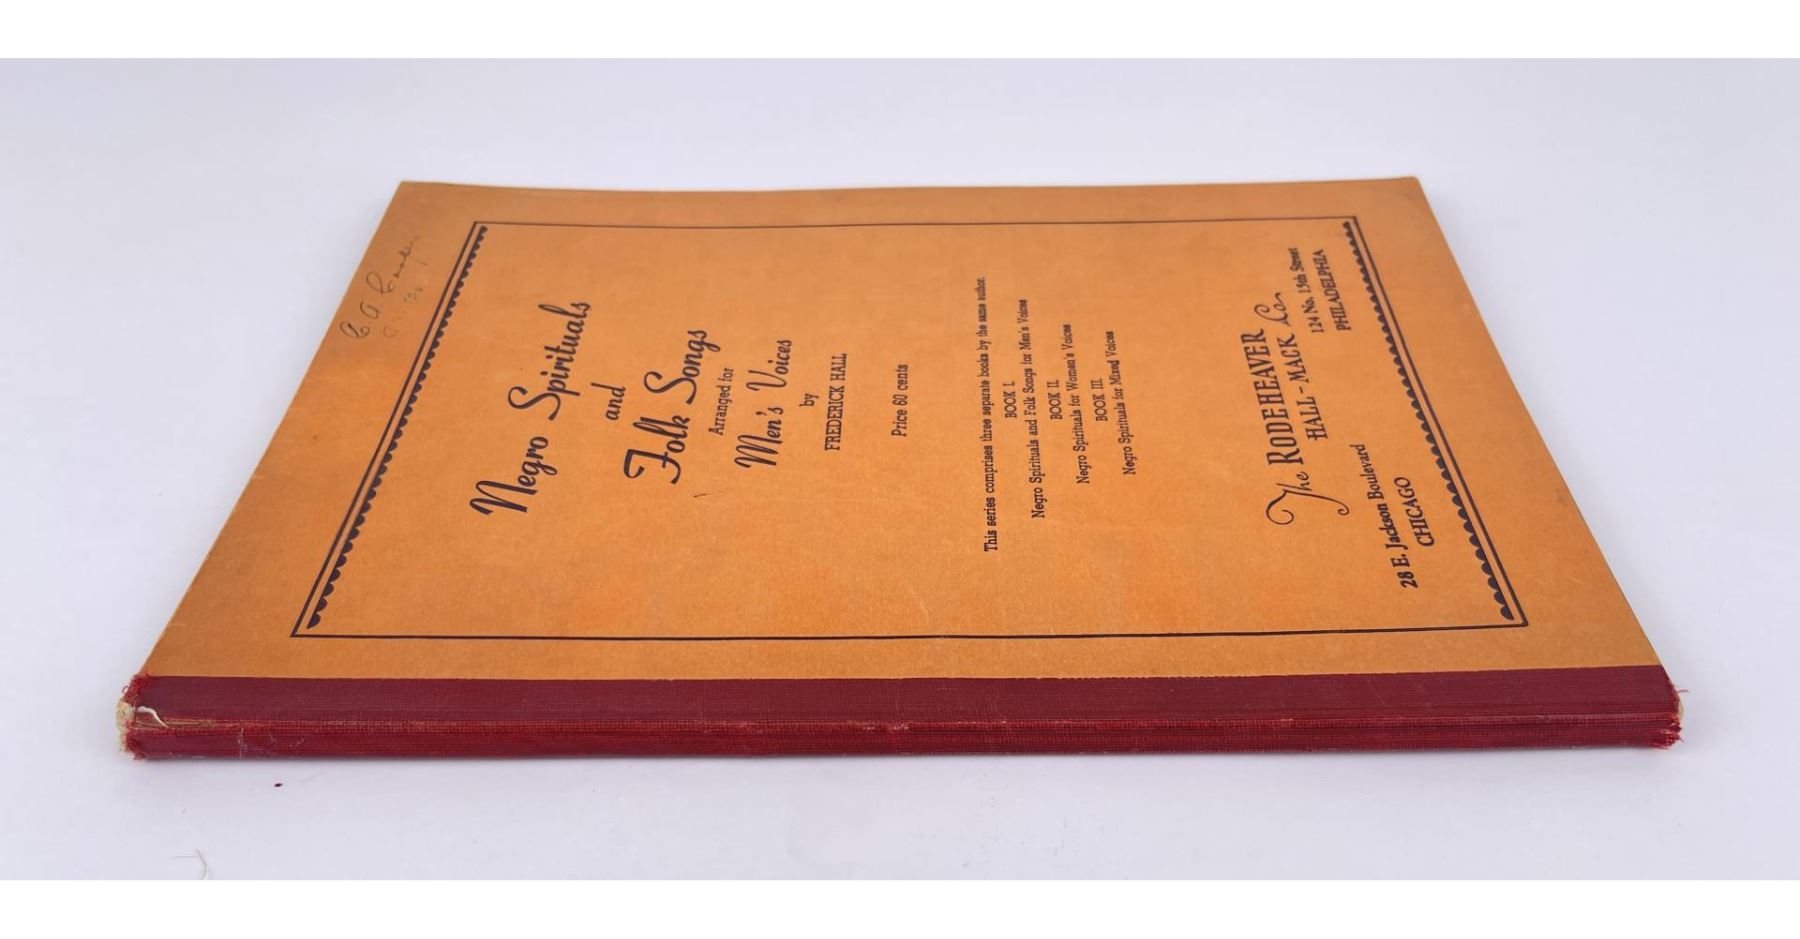 C. A.
Negro Spirituals
and
Folk Songs
Arranged for
Men's Voices
by
FREDERICK HALL
Price 60 cents
This series comprises three separate books by the same author.
BOOK I.
Negro Spirituals and Folk Songs for Men's Voices
BOOK II.
Negro Spirituals for Women's Voices
BOOK III.
Negro Spirituals for Mixed Voices
The RODEHEAVER
HALL-MACK Co.
28 E. Jackson Boulevard
CHICAGO
124 No. 15th Street
PHILADELPHIA